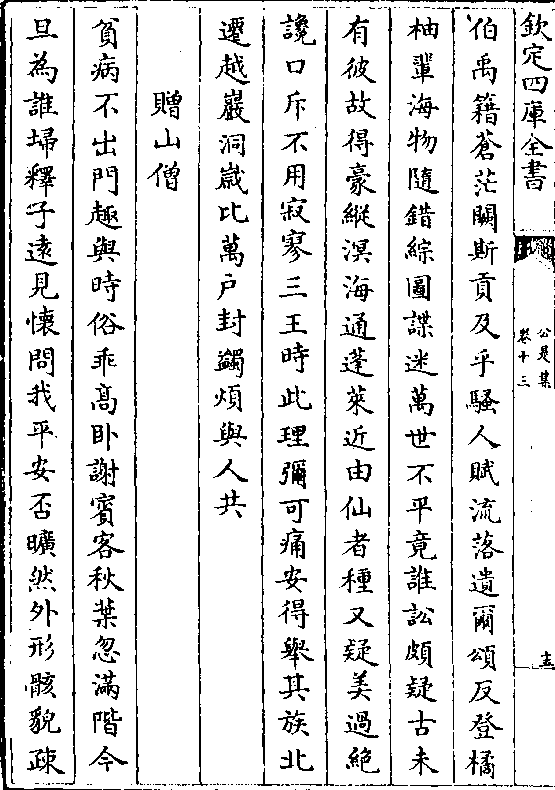 欽定四庫全書
公是集
卷十三
十五
伯禹籍蒼茫闕斯貢及乎騷人賦流落遺爾頌反登橘
柚輩海物隨錯綜圖諜迷萬世不平竟誰訟頗疑古未
有彼故得豪縱溟海通蓬萊近由仙者種又疑美過絶
讒口斥不用寂寥三王時此理彌可痛安得舉其族北
遷越巖洞歳比萬户封蠲煩與人共
贈山僧
貧病不出門趣與時俗乖髙卧謝賓客秋葉忽滿階今
旦為誰埽釋子逺見懷問我平安否曠然外形骸貌疎